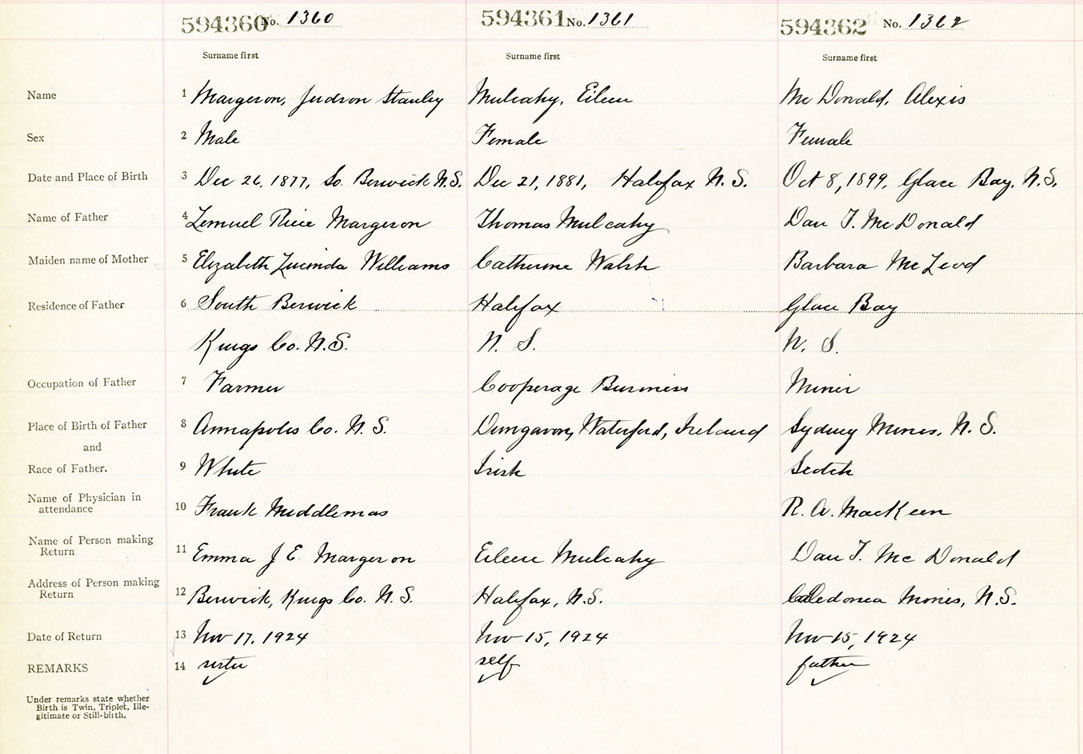 594360 No. 1360 594361 No. 1361 594362 No. 1362
Surname first Surname first Surname first
Name 1 Margeson, Judson Stanley Mulcahy, Eileen Mc Donald, Alexis
Sex 2 Male Female Female
Date and Place of Birth 3 Dec 26, 1877, So. Berwick N.S. Dec 21, 1881, Halifax N.S. Oct 8, 1899, Glace Bay, N.S.
Name of Father 4 Lemuel Rice Margeson Thomas Mulcahy Dan T. McDonald
Maiden name of Mother 5 Elizabeth Lucinda Williams Catherine Walsh Barbara McLeod
Residence of Father 6 South Berwick Halifax Glace Bay
Kings Co. N.S. N. S. N. S.
Occupation of Father 7 Farmer Cooperage Business Miner
Place of Birth of Father 8 Annapolis Co. N.S. Dungavon, Waterford, Ireland Sydney Mines, N.S.
and
Race of Father. 9 White Irish Scotch
Name of Physician in
attendance 10 Frank Middlemas R. A. MacKeen
Name of Person making
Return 11 Emma J E. Margeson Eileen Mulcahy Dan T. Mc Donald
Address of Person making
Return 12 Berwick, Kings Co. N.S. Halifax, N.S. Caledonea Mines, N.S.
Date of Return 13 Nov 17, 1924 Nov 15, 1924 Nov 15, 1924
REMARKS 14 sister self father
Under remarks state whether
Birth is Twin, Triplet, Ille-
gitimate or Still-birth.